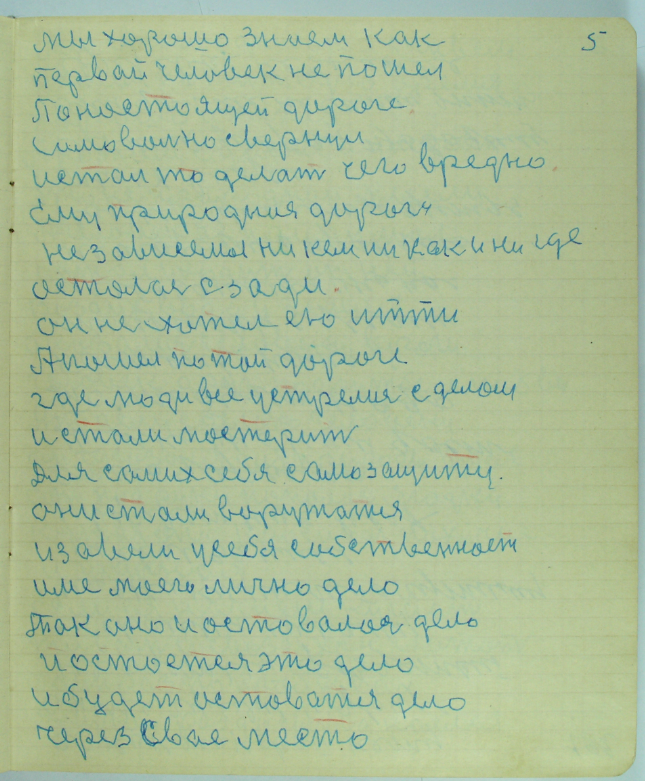 мы хорошо знаем как 5
первай человек не пошел
По ностоящей дороге.
самоволно свернул
истал то делат чего вредно.
Ему природния дорога
независемоя ни кем ни как и ни где
осталас сзади.
он не хотел ею итти
А пошел по той дороге
где люди все устремились с делом
и стали мостерит
для самих себя самозащиту.
они стали воружатся
изавели усебя собственност
име моего лично дело
так оно и оставалос дело
и остоется это дело
и будет остоватся дело
через Свое место